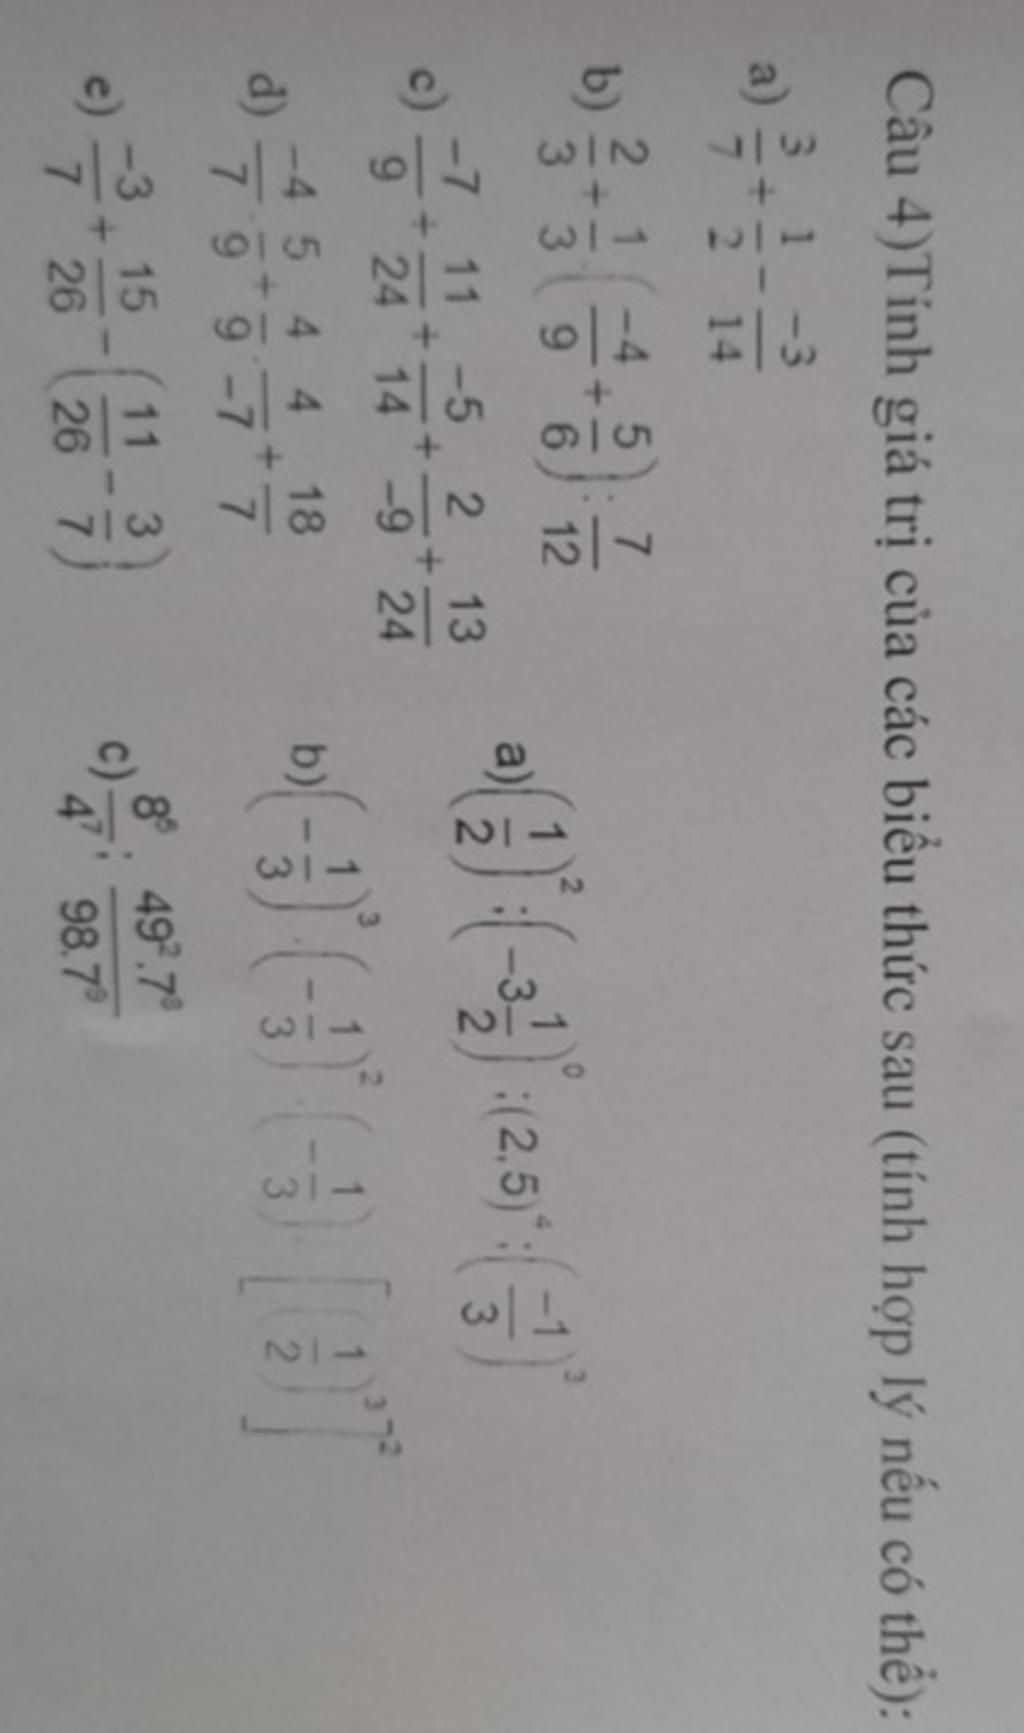 Câu 4)Tính giá trị của các biểu thức sau (tính hợp lý nếu có thể):
a) 3/7 + 1/2 - -3/14
b) 2/3 + 1/3 . (-4/9 + 5/6) : 7/12
c) -7/9 + 11/24 + -5/14 + 2/-9 + 13/24
d) -4/7 . 5/9 + 4/9 . 4/-7 + 18/7
e) -3/7 + 15/26 - (11/26 - 3/7)
a) (1/2)² ; (-3 1/2)⁰ ; (2,5)⁴ ; (-1/3)³
b) (-1/3)³ . (-1/3)² . (-1/3) . [(1/2)³]²
c) 8⁵/4⁷ ; 49².7⁸/98.7⁹